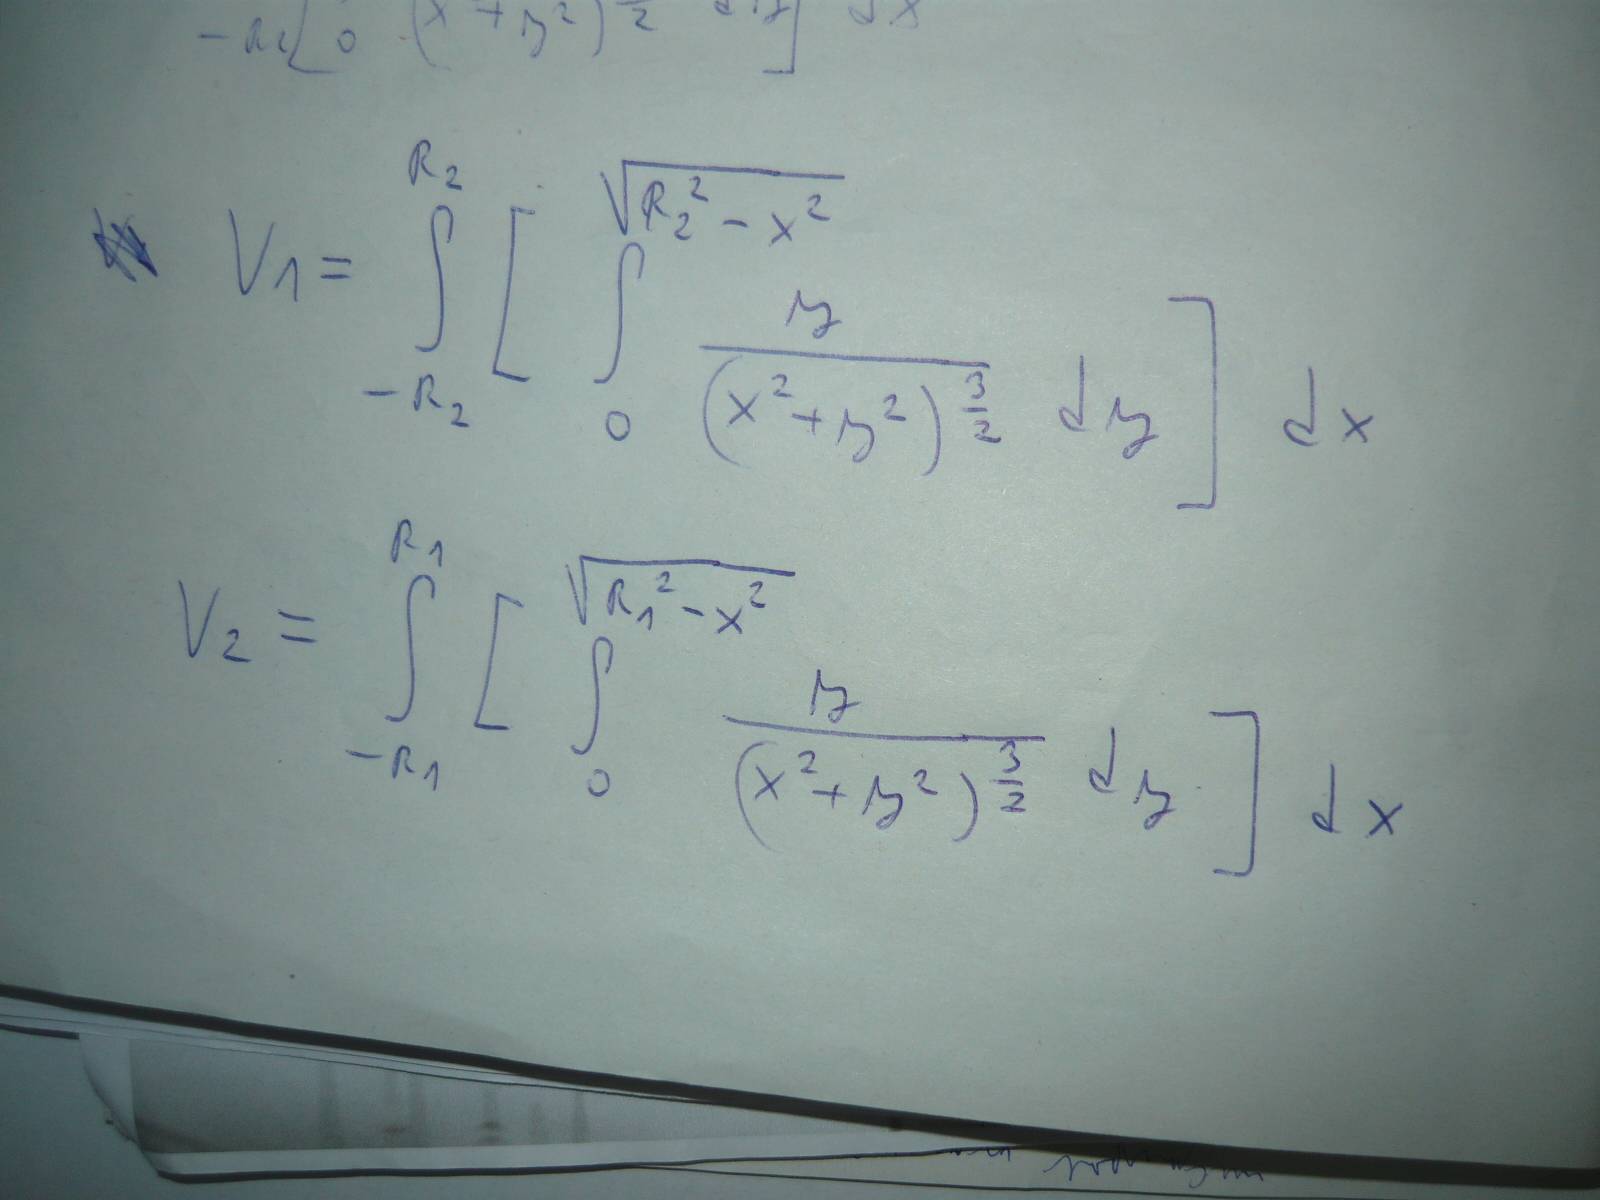 -R₂[ 0 (x²+y²)^(3/2) dy] dx
V₁ = ∫_{-R₂}^{R₂} [ ∫_0^{√(R₂² - x²)} y/(x²+y²)^{3/2} dy ] dx
V₂ = ∫_{-R₁}^{R₁} [ ∫_0^{√(R₁² - x²)} y/(x²+y²)^{3/2} dy ] dx